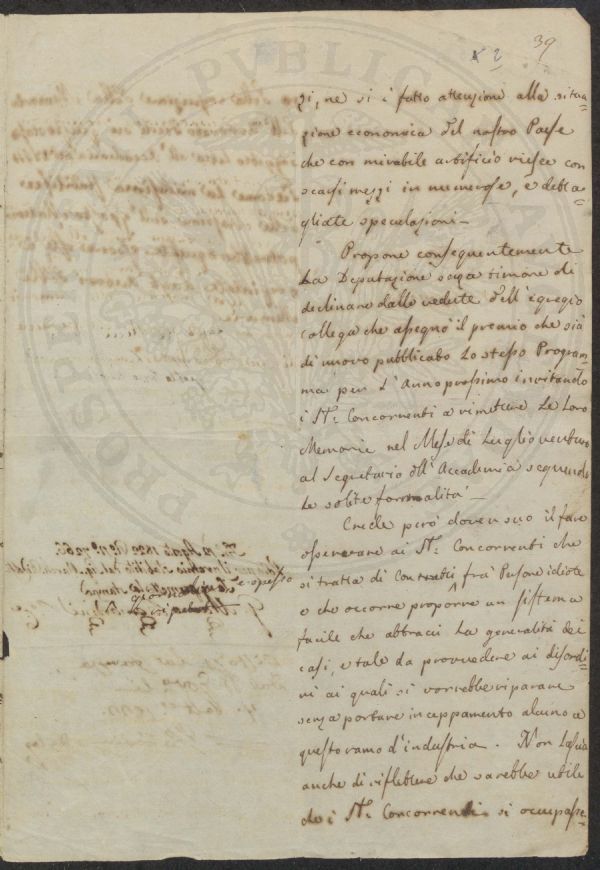 39
N 2
zi, ne si è fatto attenzione alla situa=
zione economica del nostro Paese
che con mirabile artificio riesce con
scarsi mezzi in numerose, e detta=
gliate speculazioni_
Propone conseguentemente
La Deputazione senza timore di
declinare dalle vedute dell'egregio
collega che assegnò il premio che sia
di nuovo pubblicato lo stesso Program=
ma per l'Anno prossimo invitando
i Sti: Concorrenti a rimettere le loro
Memorie nel Mese di Luglio venturo
al Segretario dell'Accademia seguendo
le solite formalità_
Crede però dover suo il fare
osservare ai Sti: Concorrenti che
si tratta di Contratti e spesso frà Persone idiote
e che occorre proporre un sistema
facile che abbracci la generalità dei
casi, e tale da provvedere ai disordi=
ni ai quali si vorrebbe riparare
senza portare inceppamento alcuno a
questo ramo d'industria. Non lascia
anche di riflettere che sarebbe utile
che i Sti: Concorrenti si occupasse=